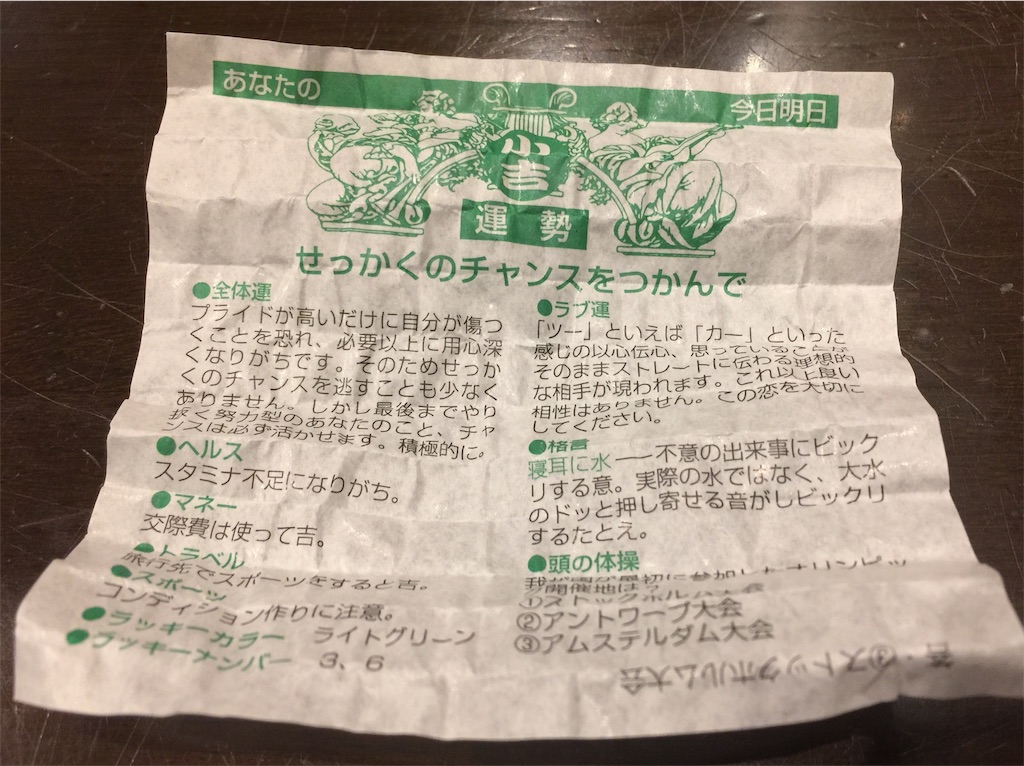 あなたの
今日明日
小吉
運勢
せっかくのチャンスをつかんで
●全体運
プライドが高いだけに自分が傷つ
くことを恐れ、必要以上に用心深
くなりがちです。そのためせっか
くのチャンスを逃すことも少なく
ありません。しかし最後までやり
抜く努力型のあなたのこと、チャ
ンスは必ず活かせます。積極的に。
●ヘルス
スタミナ不足になりがち。
●マネー
交際費は使って吉。
●トラベル
旅行先でスポーツをすると吉。
●スポーツ
コンディション作りに注意。
●ラッキーカラー ライトグリーン
●ラッキーメンバー 3、6
●ラブ運
「ツー」といえば「カー」といった
感じの以心伝心、思っていることが
そのままストレートに伝わる理想的
な相手が現われます。これ以上良い
相性はありません。この恋を大切に
してください。
●格言
寝耳に水――不意の出来事にビック
リする意。実際の水ではなく、大水
のドッと押し寄せる音がしビックリ
するたとえ。
●頭の体操
我が国が最初に参加したオリンピッ
ク開催地は？
①ストックホルム大会
②アントワープ大会
③アムステルダム大会
答・ストックホルム大会